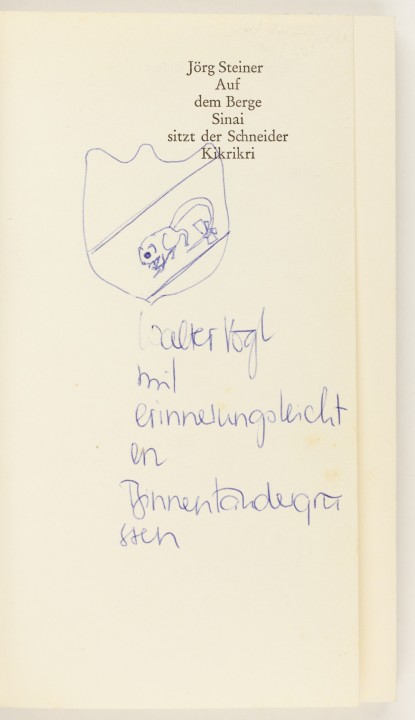 Jörg Steiner
Auf
dem Berge
Sinai
sitzt der Schneider
Kikrikri
Walter Vogt
mit
erinnerungsleicht
en